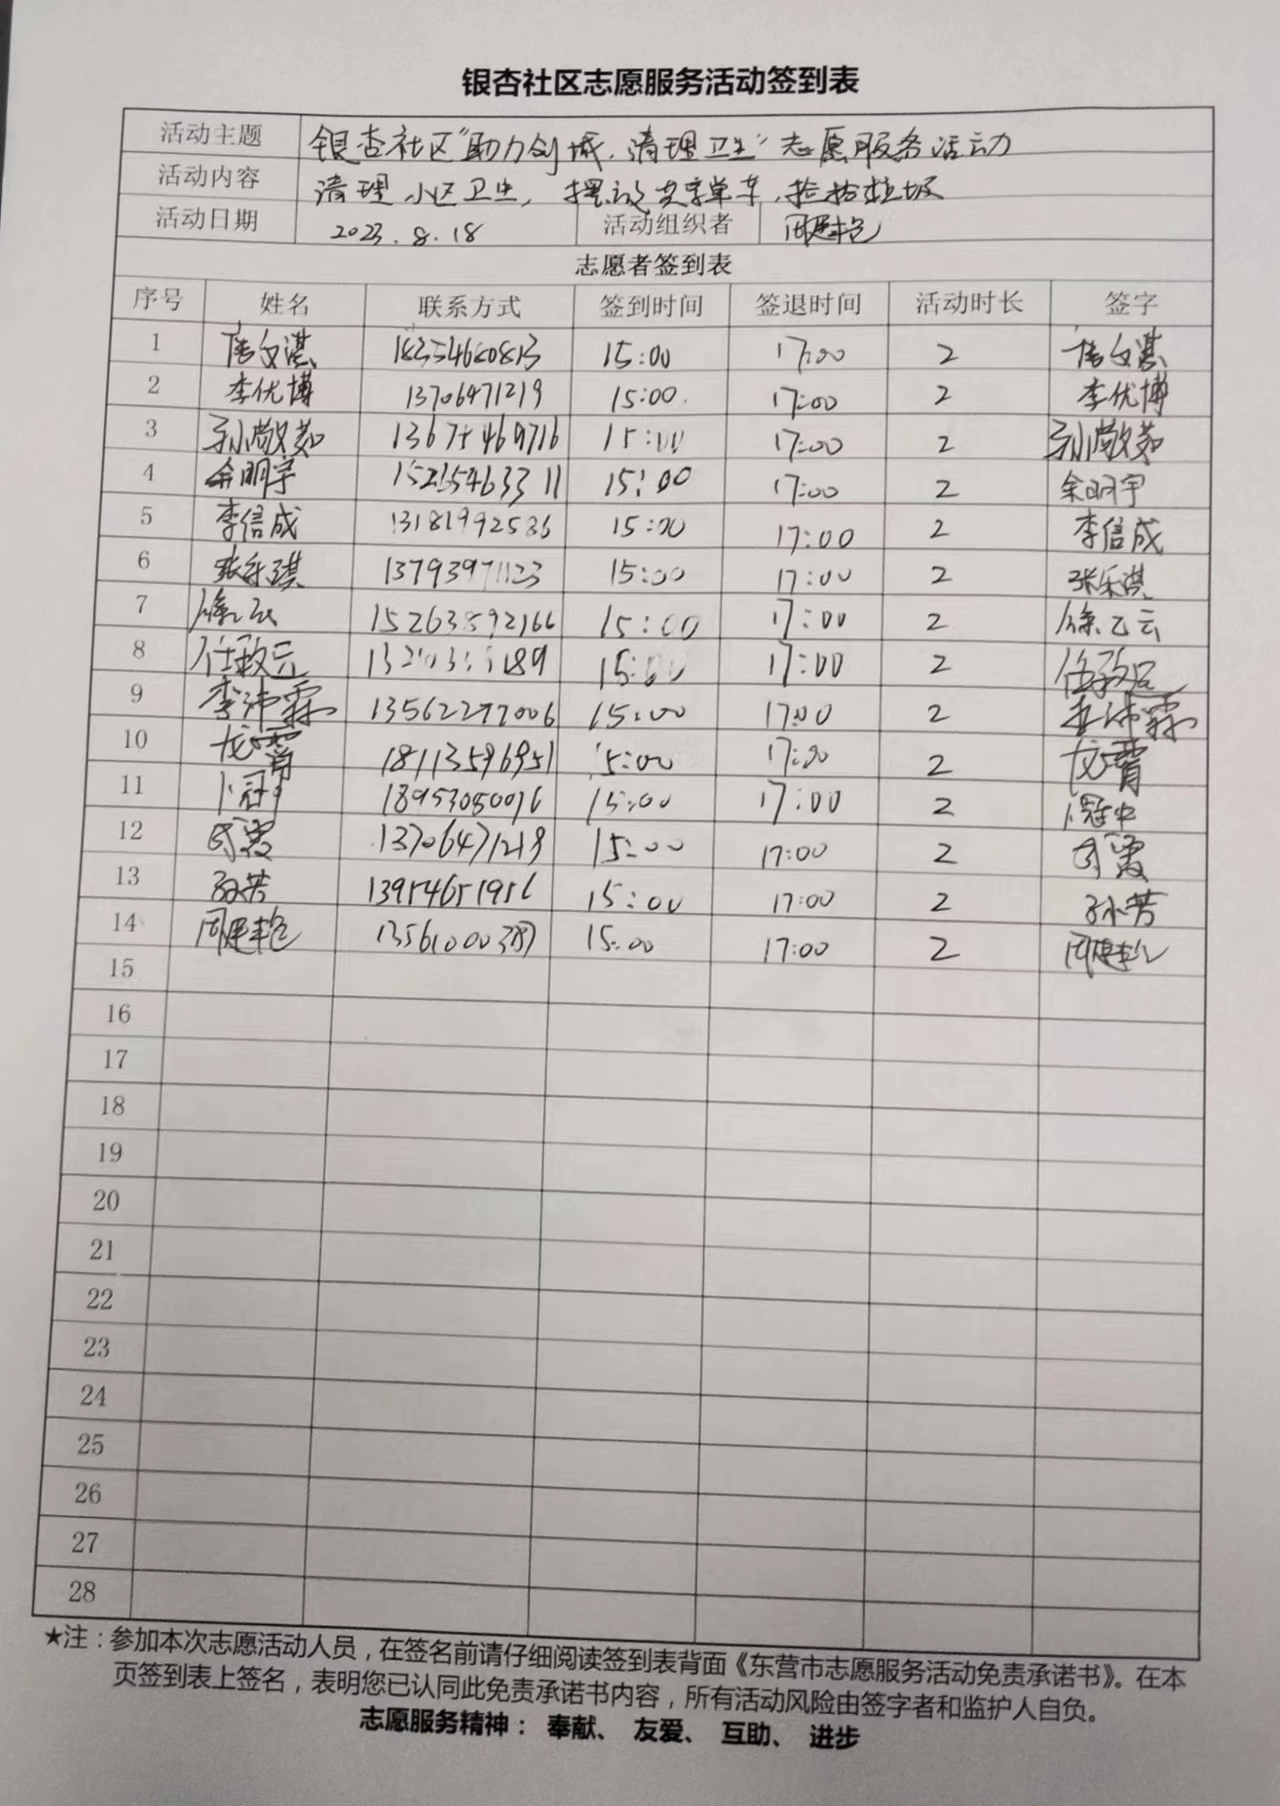 银杏社区志愿服务活动签到表
活动主题 银杏社区"助力创城，清理卫生"志愿服务活动
活动内容 清理小区卫生，摆放共享单车，捡拾垃圾
活动日期 2023.8.18 活动组织者 周建艳
志愿者签到表
序号 姓名 联系方式 签到时间 签退时间 活动时长 签字
1 唐文淇 18354680813 15:00 17:00 2 唐文淇
2 李优博 13706471219 15:00. 17:00 2 李优博
3 孙敬茹 15:00 17:00 2 孙敬茹
4 余明宇 15:00 17:00 2 余明宇
5 李信成 13181992586 15:00 17:00 2 李信成
6 张乐琪 13793971123 15:00 17:00 2 张乐淇
7 徐乙云 15263892166 15:00 17:00 2 徐乙云
8 15:00 17:00 2
9 李沛霖 13562297006 15:00 17:00 2 李沛霖
10 18113596951 15:00 17:00 2
11 18953050076 15:00 17:00 2
12 13706471219 15:00 17:00 2
13 孙芳 13954651956 15:00 17:00 2 孙芳
14 周建艳 13561000387 15:00 17:00 2 周建艳
15
16
17
18
19
20
21
22
23
24
25
26
27
28
★注：参加本次志愿活动人员，在签名前请仔细阅读签到表背面《东营市志愿服务活动免责承诺书》。在本
页签到表上签名，表明您已认同此免责承诺书内容，所有活动风险由签字者和监护人自负。
志愿服务精神： 奉献、 友爱、 互助、 进步